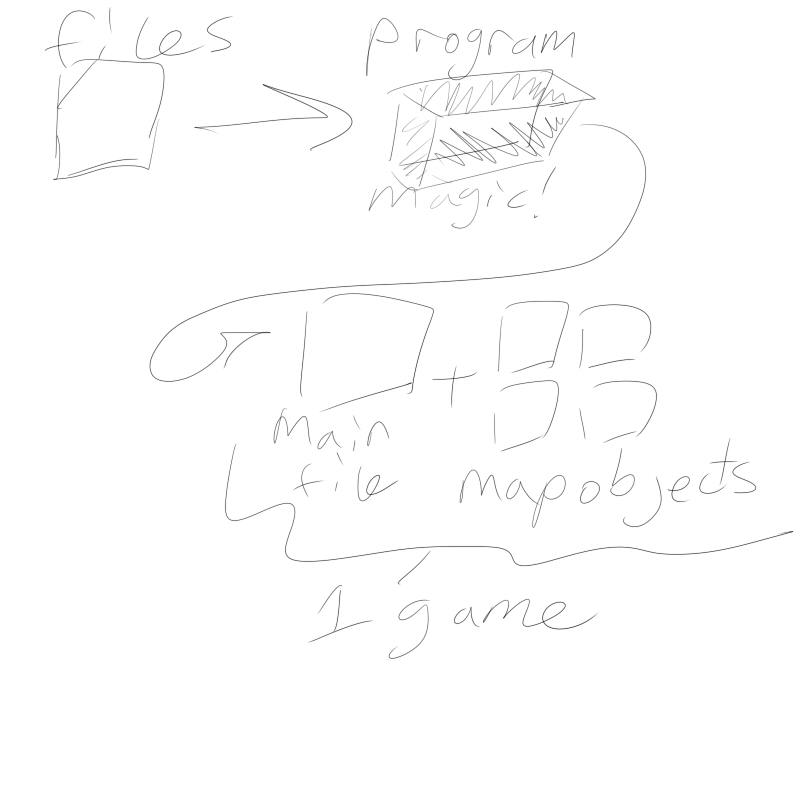 files
program
magic!
+
main
file
mapobjects
1 game